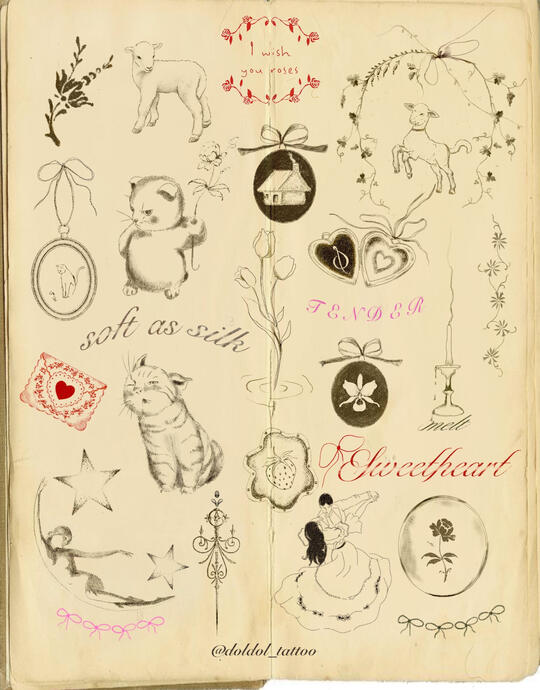 I wish
you roses
soft as silk
TENDER
melt
Sweetheart
@doldol_tattoo